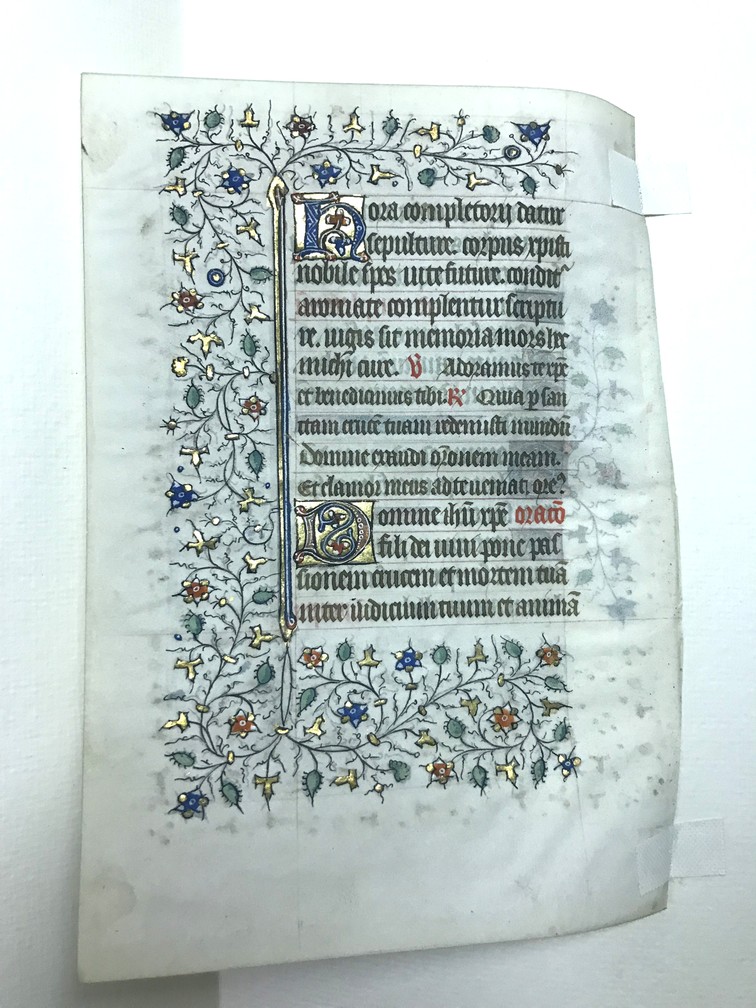 Hora completorij datur
sepulture. corpus xpisti
nobile spes uite future. condit᷑
aromate complentur scriptu
re. iugis sit memoria mors hec
michi cure. ℣ Adoramus te xp̄e
et benedicimus tibi. ℟ Quia p̱ san
ctam crucē tuam redemisti mundū
Domine exaudi or̄onem meam.
Et clamor meus ad te ueniat. ore᷑
Domine ih̄u xp̄e orat̄o
fili dei uiui pone pas
sionem crucem et mortem tuā
inter iudicium tuum et animā